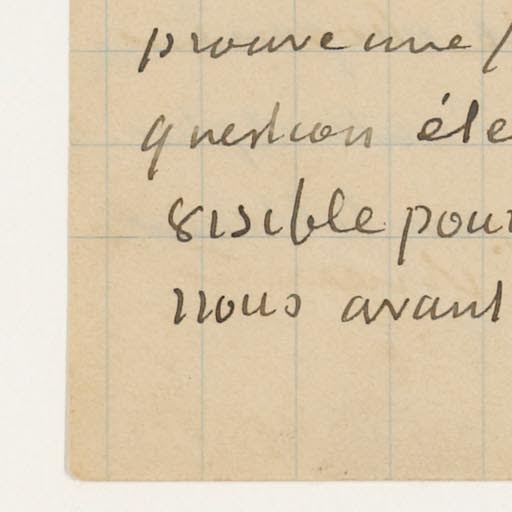 prouve une
question éle
sisible pour
nous avant